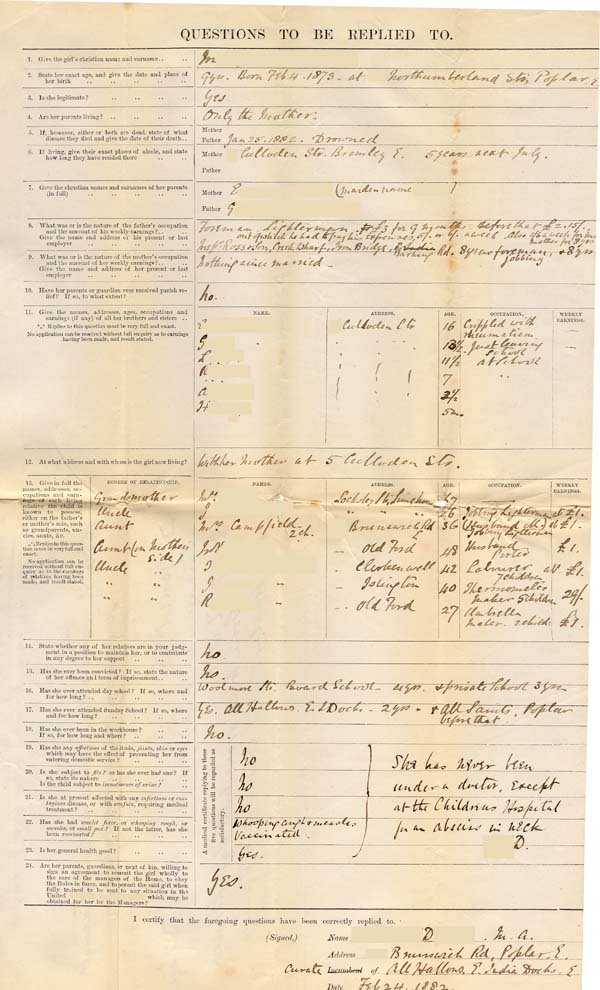 QUESTIONS TO BE REPLIED TO.
1. Give the girl's christian name and surname.. .. M
2. State her exact age, and give the date and place of her birth 9 yrs. Born Feb 4. 1873 - at Northumberland Str, Poplar, E
3. Is she legitimate? Yes
4. Are her parents living? Only the Mother.
5. If, however, either or both are dead, state of what disease they died and give the date of their death..
Mother
Father Jan 25. 1882. Drowned
6. If living, give their exact places of abode, and state how long they have resided there
Mother Culloden Str. Bromley E. 5 years next July.
Father
7. Give the christian names and surnames of their parents (in full)
Mother E (maiden name )
Father G
8. What was or is the nature of the father's occupation and the amount of his weekly earnings?..
Give the name and address of his present or last employer
Foreman Lighterman, £3 for 9 months before that £2.
Iron Bridge, Barking Rd. 8 years foreman, & 8 yrs jobbing
9. What was or is the nature of the mother's occupation and the amount of her weekly earnings?..
Give the name and address of her present or last employer
Nothing since married -
10. Have her parents or guardian ever received parish relief? If so, to what extent? No.
11. Give the names, addresses, ages, occupations and earnings (if any) of all her brothers and sisters ..
*** Replies to this question must be very full and exact.
No application can be received without full enquiry as to earnings having been made, and result stated.
NAME. ADDRESS. AGE. OCCUPATION. WEEKLY EARNINGS.
E Culloden Str 16 Crippled with rheumatism
G 13½ Just leaving School
L 11½ at School
R 7 " "
A 2½
H 5m.
12. At what address and with whom is the girl now living? With her Mother at 5 Culloden Str.
13. Give in full the names, addresses, occupations and earnings of each living relative the child is known to possess, either on the father's or mother's side, such as grandparents, uncles, aunts, &c.
*** Replies to this question must be very full and exact.
No application can be received without full enquiry as to the earnings of relatives having been made, and result stated.
DEGREE OF RELATIONSHIP. NAMES. ADDRESS. AGE. OCCUPATION. WEEKLY EARNINGS.
Grandmother Mrs. 67
Uncle " " 26 Jobbing Lighterman at £1.
Aunt Mrs Campfield 2ch. Brunswick Rd E 36 (Husband) Jobbing Lighterman at £1.
Aunt (on Mothers Side) Old Ford 48 Husband Porter £1.
Uncle J Clerkenwell 42 Labourer 7 children at £1.
" J " Islington 40 Thermometer maker 5 children 29/-
" R " Old Ford 27 Umbrella maker. 2 child: £1.
14. State whether any of her relatives are in your judgment in a position to maintain her, or to contribute in any degree to her support No
15. Has she ever been convicted? If so, state the nature of her offence and term of imprisonment.. No.
16. Has she ever attended day school? If so, where and for how long? .. Woolmore Str. Board School - 4 yrs. & private School 3 yrs
17. Has she ever attended Sunday School? If so, where and for how long? Yes. All Hallows E.I Docks. - 2 yrs - & All Saints, Poplar before that.
18. Has she ever been in the workhouse? If so, for how long and where? No.
A medical certificate replying to these five questions will be regarded as satisfactory.
19. Has she any affections of the limbs, joints, skin or eyes which may have the effect of preventing her from entering domestic service? No
20. Is she subject to fits? or has she ever had one? If so, state its nature
Is the child subject to incontinence of urine? No
21. Is she at present affected with any infectious or contagious disease, or with ringworm, requiring medical treatment? No
22. Has she had scarlet fever, or whooping cough, or measles, or small pox? If not the latter, has she been vaccinated? Whooping cough & measles
Vaccinated.
23. Is her general health good? Yes.
She has never been
under a doctor, except
at the Childrens Hospital
for an abscess in neck
D.
24. Are her parents, guardians, or next of kin, willing to sign an agreement to commit the girl wholly to the care of the managers of the Home, to obey the Rules in force, and to permit the said girl when fully trained to be sent to any situation in the United which may be obtained for her by the Managers? Yes.
I certify that the foregoing questions have been correctly replied to.
(Signed,) Name D M.A.
Address Brunswick Rd, Poplar, E.
Curate Incumbent of All Hallows, E. India Docks, E
Date Feb 24. 1882.